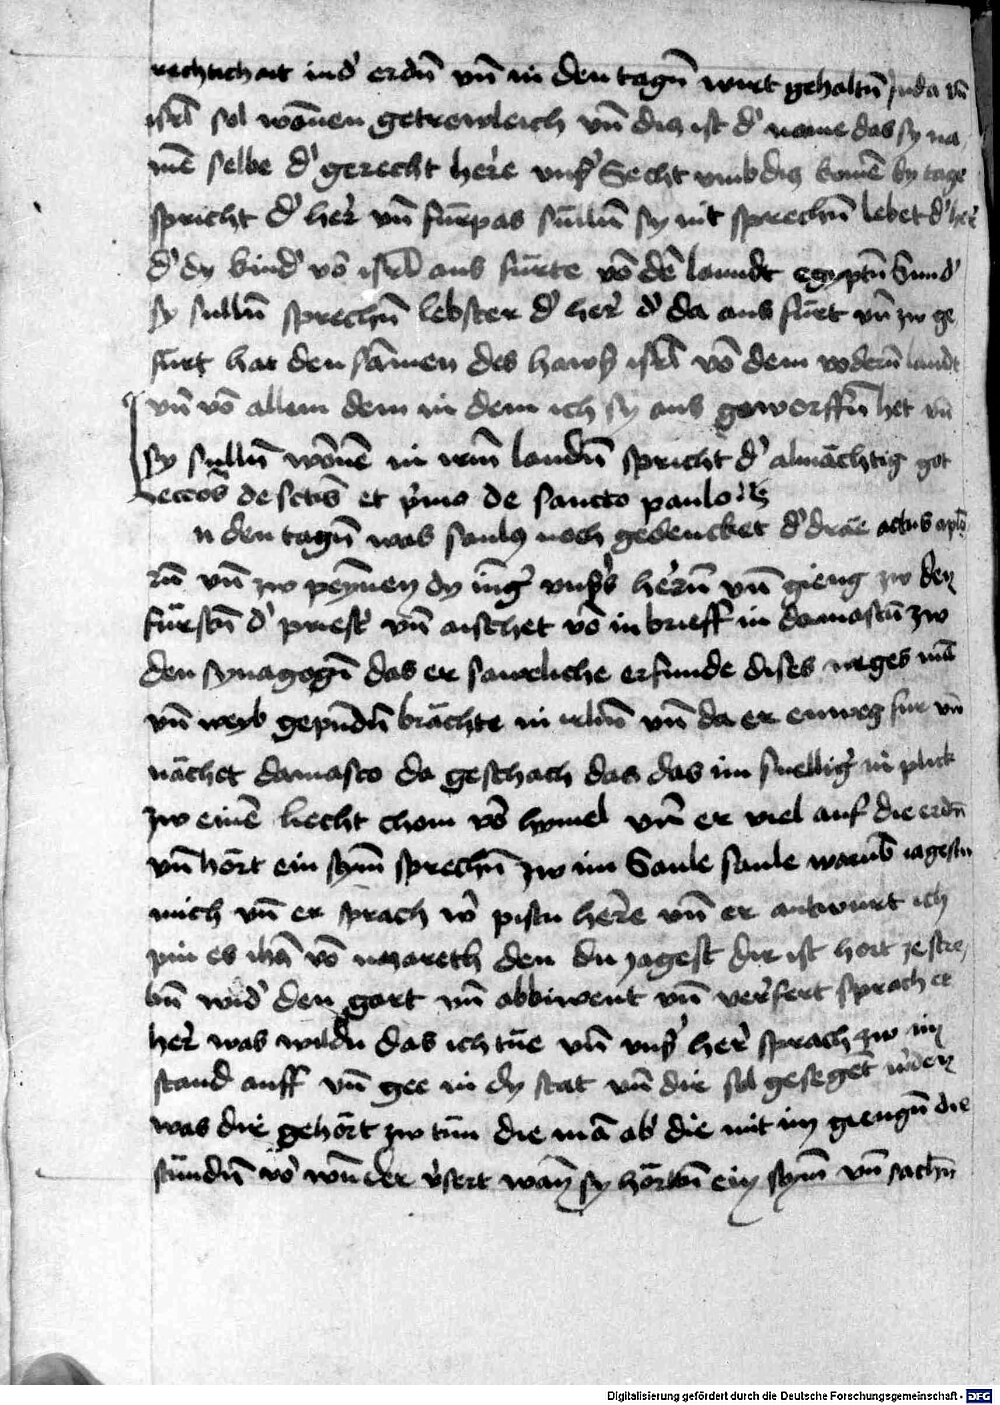 rechtichait in d' erdn̄ vn̄ in den tagn̄ wirt gehaltn̄ Juda vn̄
isrl̄ sol wonen getrewleich vn̄ dis ist d' name das sy na
mē selbe d' gerecht her̄e vns' Secht vmb dis komē dy tage
spricht d' her' vn̄ fürpas sülln̄ sy nit sprechn̄ lebet d' her'
d' dy kind' vō isrl̄ aus fürte vō dē lanndt egyptn̄ Sund'
sy sulln̄ sprechn̄ lebster d' her' d' da aus fürt vn̄ zw ge
fürt hat den samen des haws isrl̄ vō dem vodern̄ landt
vn̄ vō allem dem in dem ich sy aus geworffn̄ het vn̄
sy sulln̄ wonē in irm̄ landn̄ spricht d' almächtig got
leccō de sctīs et p'mo de sancto paulo
n den tagn̄ was saulus noch gedencket d' drāe actus aplōr̄
rn̄ vn̄ zw peynnen dy iūg' vns's hern̄ vn̄ gieng zw den
fürstn̄ d' priest' vn̄ aischet vō in brieff in damascū zw
den synagogn̄ das er sawrliche erfunde dises weges mā
vn̄ weyb gepūdn̄ brächte in irlm̄ vn̄ da er enweg fur vn̄
nächet damasco da geschach das das im snellig' in plick
zw einē liecht chom vō hymel vn̄ er viel auf die erdn̄
vn̄ hört ein stym̄ sprechn̄ zw im Saule saule warūb iagestu
mich vn̄ er sprach w' pistu her̄e vn̄ er antwurt ich
pin es ihūs vō nazareth den du iagest dir ist hort ze stre
bn̄ wid' den gart vn̄ abbiwent vn̄ ver̄fert sprach er
her' was wildu das ich tüe vn̄ vns' her' sprach zw im
stand auff vn̄ gee in dy stat vn̄ dir sol gesegēt w'den
was dir gehört zw tün die mā ab' die mit im giengn̄ die
stündn̄ vō wūder v'sert wan̄ sy hörtn̄ ein stym̄ vn̄ sachn̄
Digitalisierung gefördert durch die Deutsche Forschungsgemeinschaft - DFG